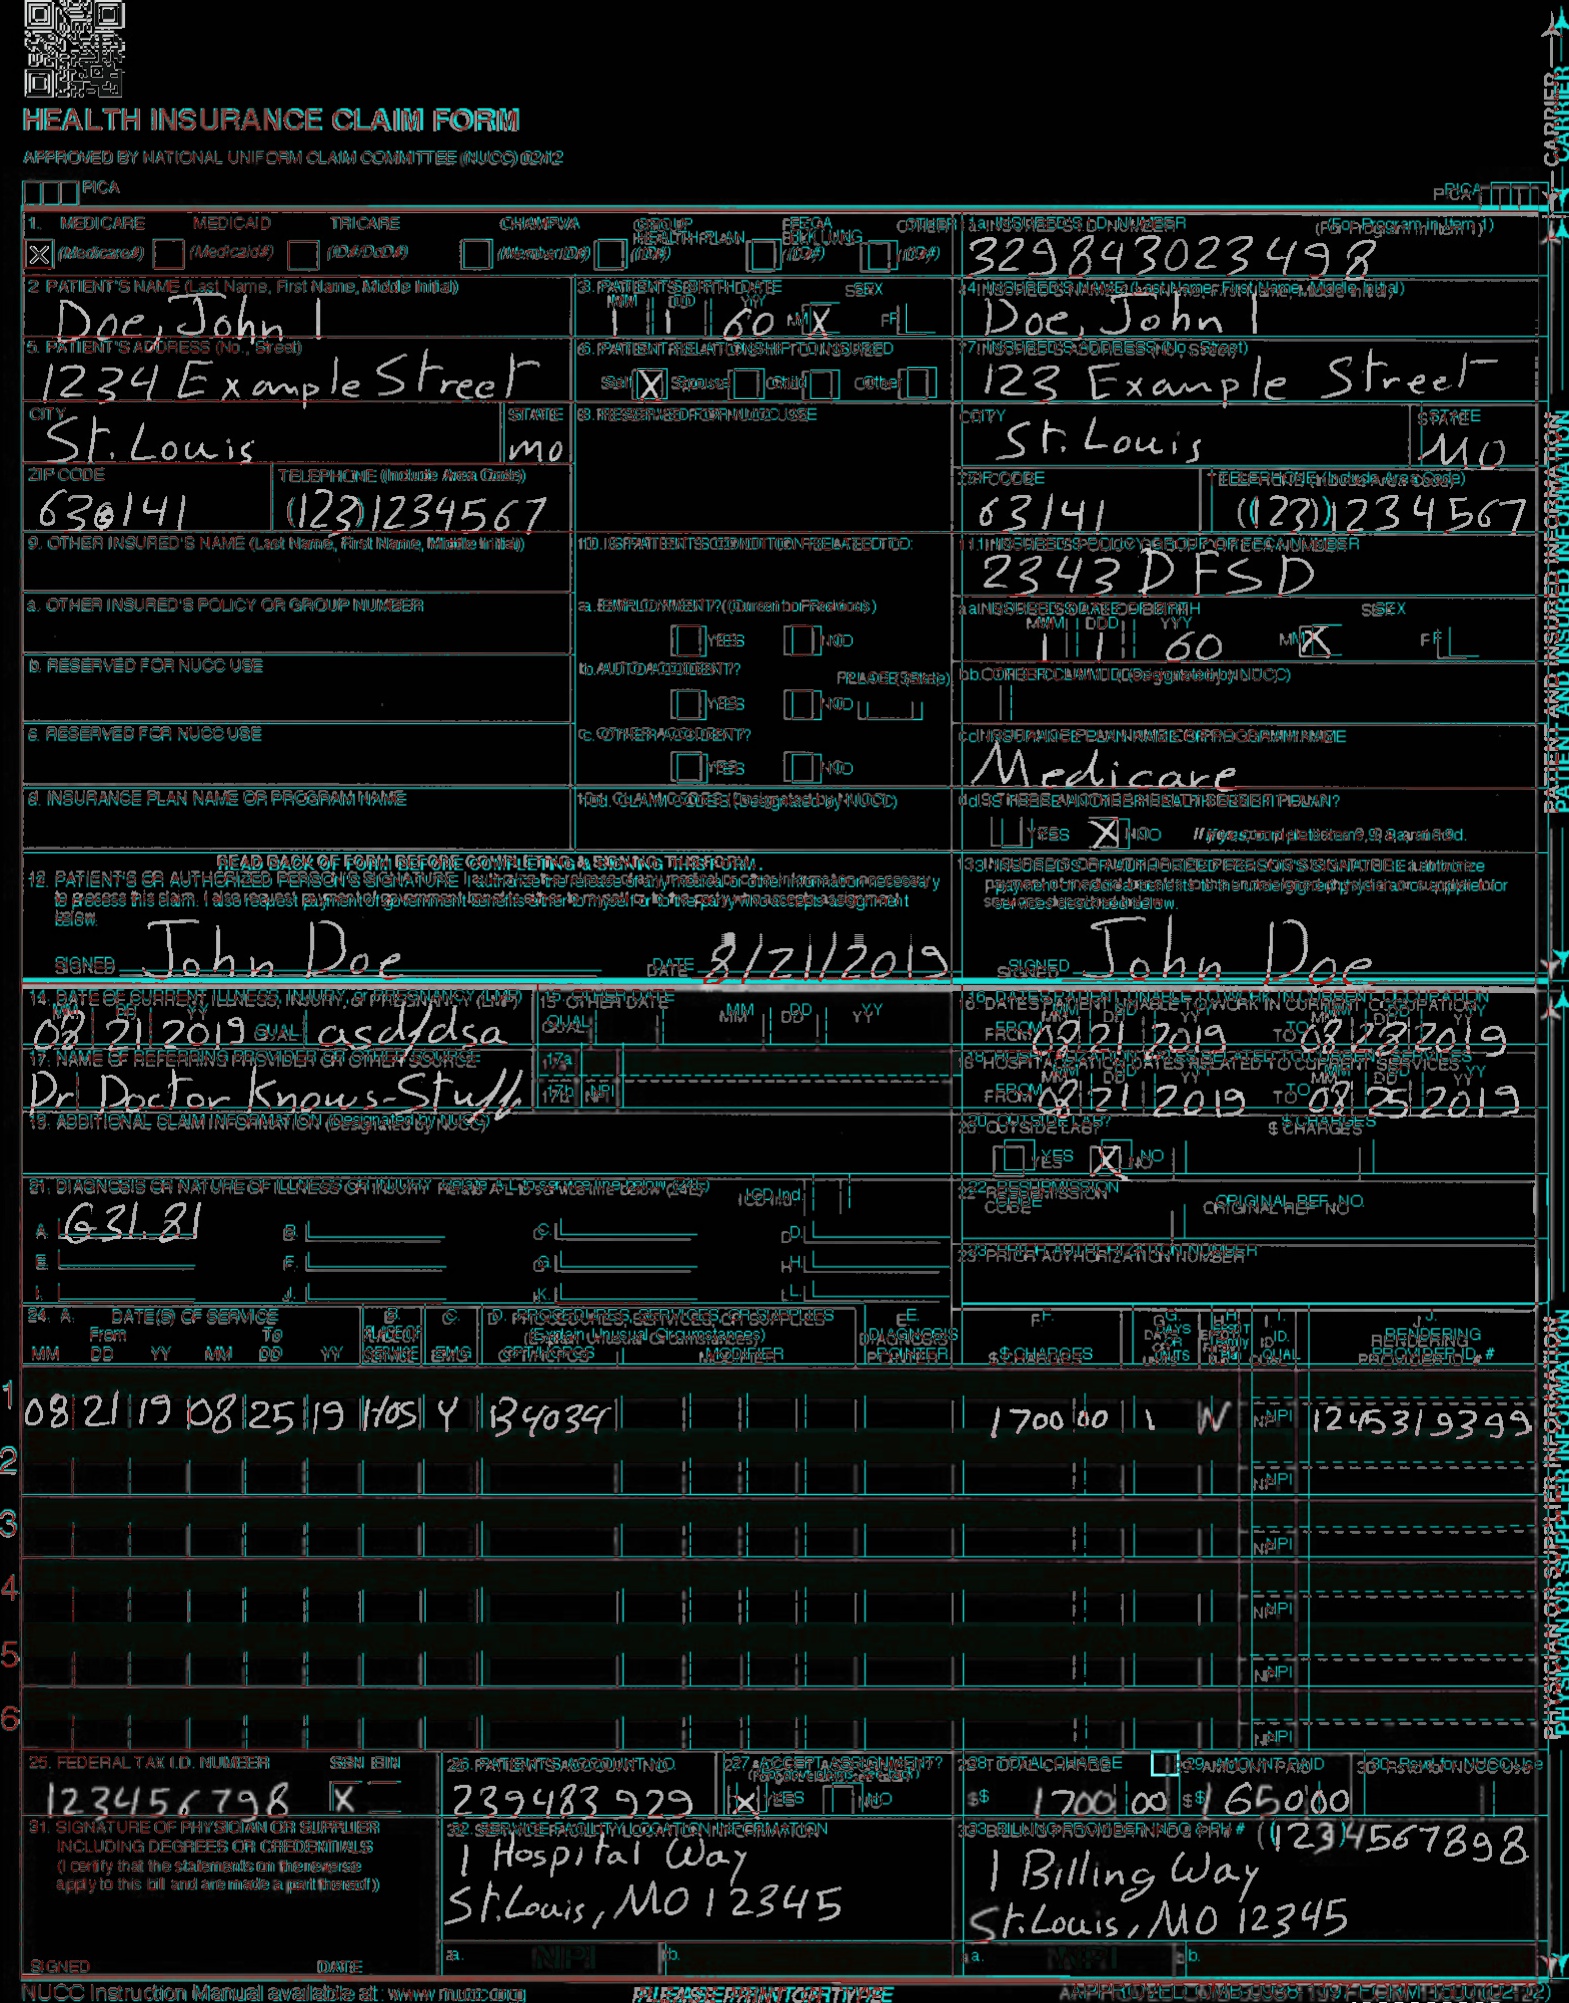 HEALTH INSURANCE CLAIM FORM
APPROVED BY NATIONAL UNIFORM CLAIM COMMITTEE (NUCC) 02/12
PICA PICA
1. MEDICARE MEDICAID TRICARE CHAMPVA GROUP HEALTH PLAN FECA BLK LUNG OTHER
X (Medicare#) (Medicaid#) (ID#/DoD#) (Member ID#) (ID#) (ID#) (ID#)
1a. INSURED'S I.D. NUMBER (For Program in Item 1)
329843023498
2. PATIENT'S NAME (Last Name, First Name, Middle Initial)
Doe, John I
3. PATIENT'S BIRTH DATE SEX
MM DD YY
1 1 60 M X F
4. INSURED'S NAME (Last Name, First Name, Middle Initial)
Doe, John I
5. PATIENT'S ADDRESS (No., Street)
1234 Example Street
6. PATIENT RELATIONSHIP TO INSURED
Self X Spouse Child Other
7. INSURED'S ADDRESS (No., Street)
123 Example Street
CITY STATE
St. Louis MO
8. RESERVED FOR NUCC USE
CITY STATE
St. Louis MO
ZIP CODE TELEPHONE (Include Area Code)
(123)1234567
ZIP CODE TELEPHONE (Include Area Code)
63141 (123)1234567
9. OTHER INSURED'S NAME (Last Name, First Name, Middle Initial)
10. IS PATIENT'S CONDITION RELATED TO:
11. INSURED'S POLICY GROUP OR FECA NUMBER
2343DFSD
a. OTHER INSURED'S POLICY OR GROUP NUMBER
a. EMPLOYMENT? (Current or Previous)
YES NO
a. INSURED'S DATE OF BIRTH SEX
MM DD YY
1 1 60 M X F
b. RESERVED FOR NUCC USE
b. AUTO ACCIDENT? PLACE (State)
YES NO
b. OTHER CLAIM ID (Designated by NUCC)
c. RESERVED FOR NUCC USE
c. OTHER ACCIDENT?
YES NO
c. INSURANCE PLAN NAME OR PROGRAM NAME
Medicare
d. INSURANCE PLAN NAME OR PROGRAM NAME
10d. CLAIM CODES (Designated by NUCC)
d. IS THERE ANOTHER HEALTH BENEFIT PLAN?
YES X NO If yes, complete items 9, 9a, and 9d.
READ BACK OF FORM BEFORE COMPLETING & SIGNING THIS FORM.
12. PATIENT'S OR AUTHORIZED PERSON'S SIGNATURE I authorize the release of any medical or other information necessary
to process this claim. I also request payment of government benefits either to myself or to the party who accepts assignment
below.
SIGNED John Doe DATE 8/21/2019
13. INSURED'S OR AUTHORIZED PERSON'S SIGNATURE I authorize
payment of medical benefits to the undersigned physician or supplier for
services described below.
SIGNED John Doe
14. DATE OF CURRENT ILLNESS, INJURY, or PREGNANCY (LMP)
MM DD YY
08 21 2019 QUAL asdfdsa
15. OTHER DATE
QUAL MM DD YY
16. DATES PATIENT UNABLE TO WORK IN CURRENT OCCUPATION
MM DD YY MM DD YY
FROM 08 21 2019 TO 08 23 2019
17. NAME OF REFERRING PROVIDER OR OTHER SOURCE
Dr Doctor Knows-Stuff
17a.
17b. NPI
18. HOSPITALIZATION DATES RELATED TO CURRENT SERVICES
MM DD YY MM DD YY
FROM 08 21 2019 TO 08 25 2019
19. ADDITIONAL CLAIM INFORMATION (Designated by NUCC)
20. OUTSIDE LAB? $ CHARGES
YES X NO
21. DIAGNOSIS OR NATURE OF ILLNESS OR INJURY Relate A-L to service line below (24E) ICD Ind.
A. G31.81 B. C. D.
E. F. G. H.
I. J. K. L.
22. RESUBMISSION CODE ORIGINAL REF. NO.
23. PRIOR AUTHORIZATION NUMBER
24. A. DATE(S) OF SERVICE B. C. D. PROCEDURES, SERVICES, OR SUPPLIES E. F. G. H. I. J.
From To PLACE OF (Explain Unusual Circumstances) DIAGNOSIS DAYS OR UNITS EPSDT Family Plan ID. RENDERING
MM DD YY MM DD YY SERVICE EMG CPT/HCPCS MODIFIER POINTER $ CHARGES QUAL. PROVIDER ID. #
1 08 21 19 08 25 19 HOS Y B4034 1700 00 1 N NPI 1245319399
2 NPI
3 NPI
4 NPI
5 NPI
6 NPI
25. FEDERAL TAX I.D. NUMBER SSN EIN
123456798 X
26. PATIENT'S ACCOUNT NO.
239483929
27. ACCEPT ASSIGNMENT?
(For govt. claims, see back)
X YES NO
28. TOTAL CHARGE
$ 1700 00
29. AMOUNT PAID
$ 1650 00
30. Rsvd for NUCC Use
31. SIGNATURE OF PHYSICIAN OR SUPPLIER
INCLUDING DEGREES OR CREDENTIALS
(I certify that the statements on the reverse
apply to this bill and are made a part thereof.)
SIGNED DATE
32. SERVICE FACILITY LOCATION INFORMATION
1 Hospital Way
St. Louis, MO 12345
a. NPI b.
33. BILLING PROVIDER INFO & PH # (123)4567898
1 Billing Way
St. Louis, MO 12345
a. NPI b.
NUCC Instruction Manual available at: www.nucc.org
PLEASE PRINT OR TYPE
CARRIER
PATIENT AND INSURED INFORMATION
PHYSICIAN OR SUPPLIER INFORMATION